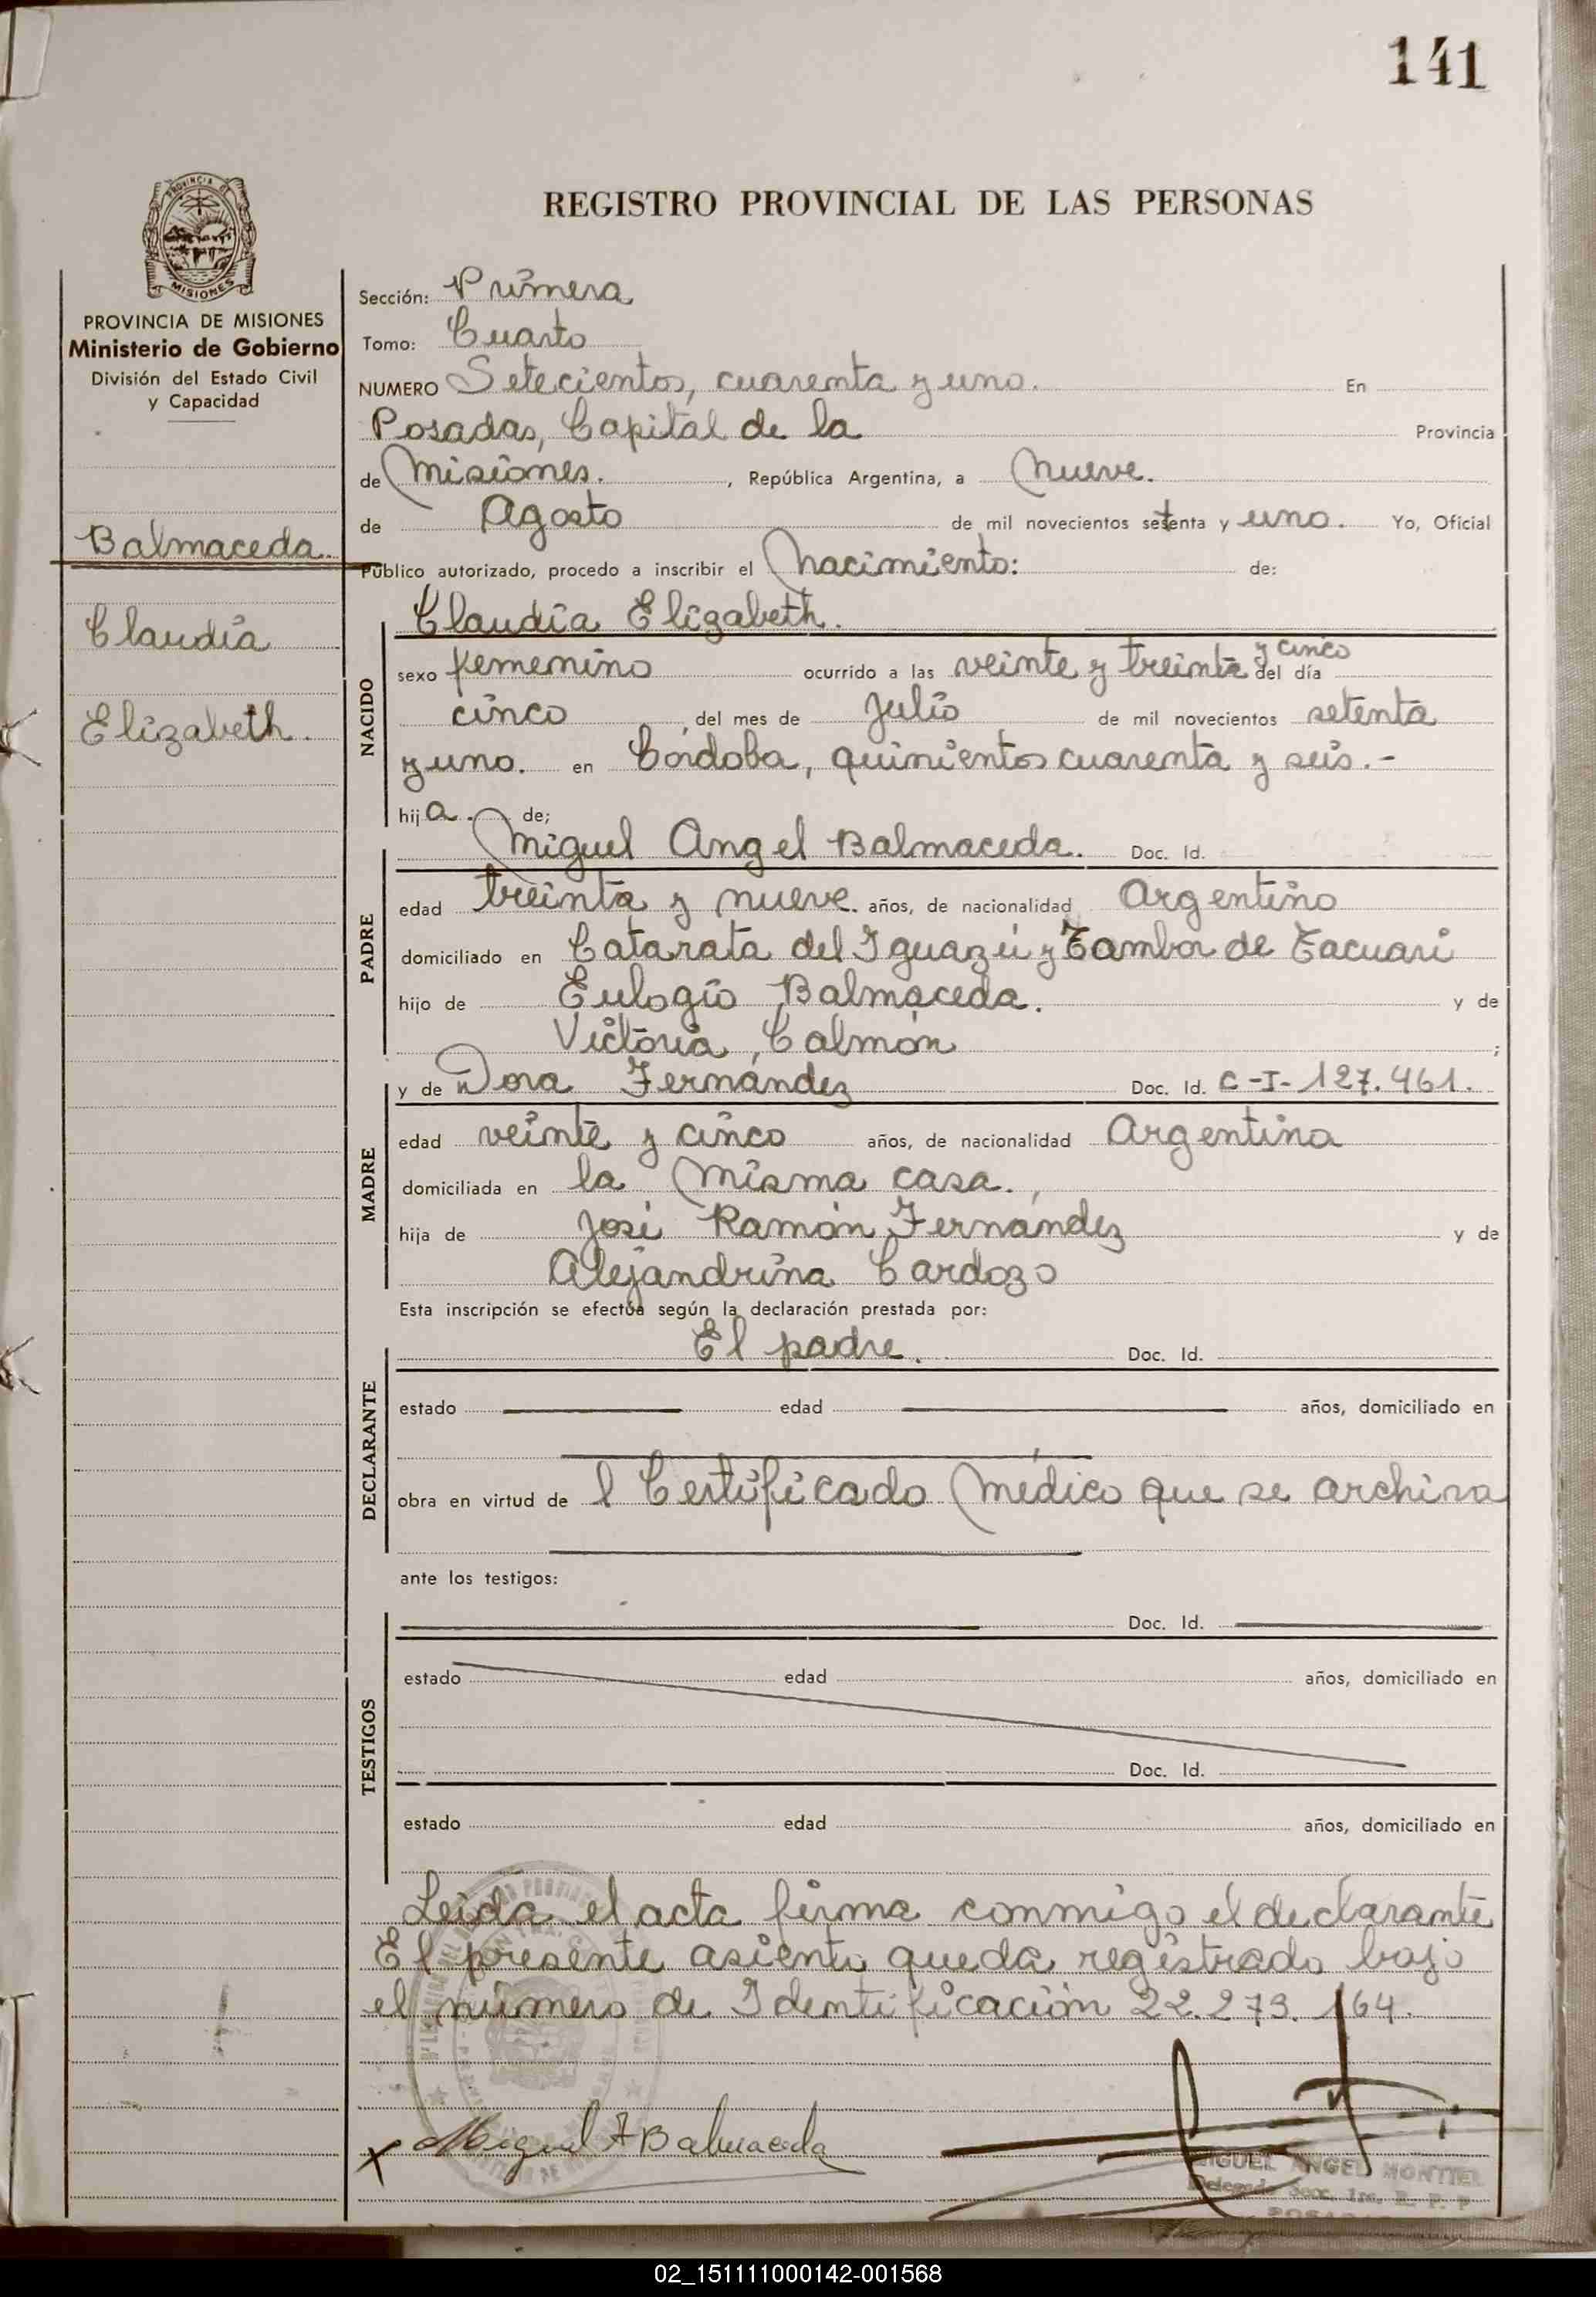 141
REGISTRO PROVINCIAL DE LAS PERSONAS
PROVINCIA DE
MISIONES
PROVINCIA DE MISIONES
Ministerio de Gobierno
División del Estado Civil
y Capacidad
Balmaceda.
Claudia
Elizabeth.
Sección: Primera
Tomo: Cuarto
NUMERO Setecientos, cuarenta y uno. En
Posadas, Capital de la Provincia
de Misiones. , República Argentina, a Nueve.
de Agosto de mil novecientos setenta y uno. Yo, Oficial
Público autorizado, procedo a inscribir el Nacimiento: de:
Claudia Elizabeth.
NACIDO
y cinco
sexo femenino ocurrido a las veinte y treinta del día
cinco del mes de Julio de mil novecientos setenta
y uno. en Córdoba, quinientos cuarenta y seis.-
hija. de;
Miguel Angel Balmaceda. Doc. Id.
PADRE
edad treinta y nueve. años, de nacionalidad Argentino
domiciliado en Catarata del Iguazú y Tambor de Tacuari
hijo de Eulogio Balmaceda. y de
Victoria, Calmón ;
y de Dora Fernández Doc. Id. C-I-127.461.
MADRE
edad veinte y cinco años, de nacionalidad Argentina
domiciliada en la misma casa.,
hija de José Ramón Fernández y de
Alejandrina Cardozo
Esta inscripción se efectúa según la declaración prestada por:
El padre. Doc. Id.
DECLARANTE
estado edad años, domiciliado en
obra en virtud de l Certificado Médico que se archiva
ante los testigos:
Doc. Id.
TESTIGOS
estado edad años, domiciliado en
Doc. Id.
estado edad años, domiciliado en
Leída el acta firma conmigo el declarante
El presente asiento queda registrado bajo
el número de Identificación 22.273.164.
x Miguel A Balmaceda
MIGUEL ANGEL MONTIEL
Delegado Secc. 1ra. R. P. P
POSADAS
02_151111000142-001568